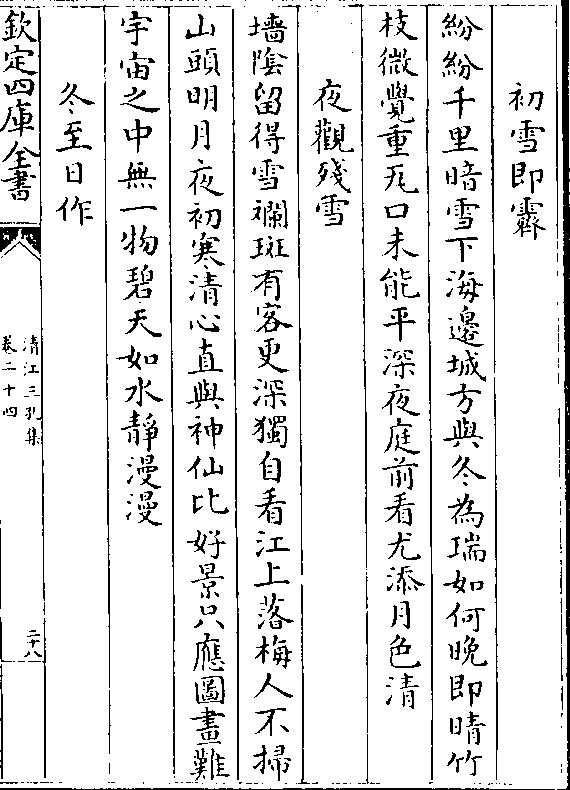 初雪即霽
紛紛千里暗雪下海邊城方與冬為瑞如何晚即晴竹
枝微覺重瓦口未能平深夜庭前看尤添月色清
夜觀殘雪
墻陰留得雪斕斑有客更深獨自看江上落梅人不掃
山頭明月夜初寒清心直與神仙比好景只應圖畫難
宇宙之中無一物碧天如水靜漫漫
冬至日作
欽定四庫全書
清江三孔集
卷二十四
二十八